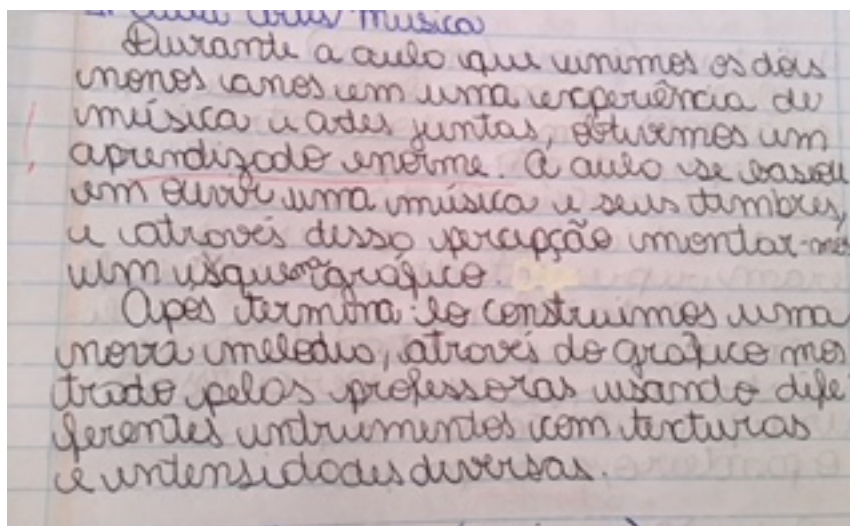 música
Durante a aula que unimos os dois
nonos anos em uma experiência de
música e artes juntas, obtivemos um
aprendizado enorme. A aula se baseou
em ouvir uma música e seus timbres,
e através dessa percepção montar-mos
um gráfico.
Após termina-lo construimos uma
nova melodia, através do gráfico mos
trado pelas professoras usando dife
ferentes intrumentos com texturas
e intensidades diversas.